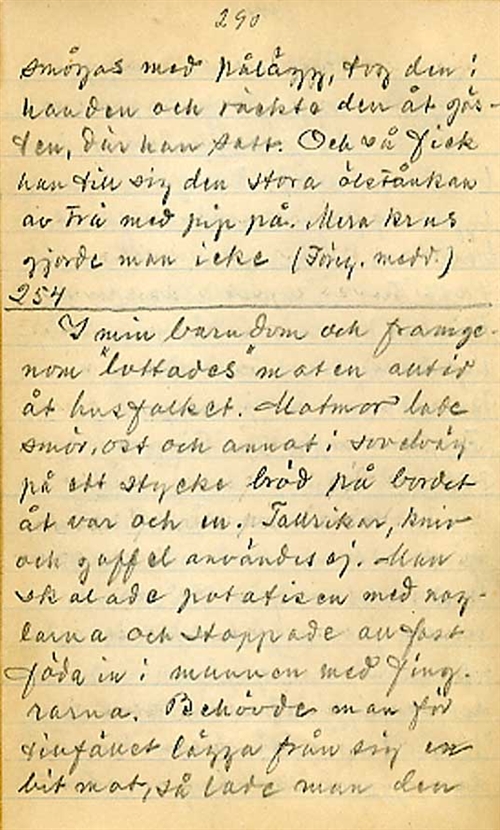 290
smörgas med pålägg, tog den i
handen och räckte den åt gäs-
ten, där han satt. Och så fick
han till sig den stora ölstånkan
av trä med pip på. Mera krus
gjorde man icke (Förg. medd.)
254
I min barndom och framge-
nom "lottades" maten alltid
åt husfolket. Matmor lade
smör, ost och annat i sovelväg
på ett stycke bröd på bordet
åt var och en. Tallrikar, kniv
och gaffel användes ej. Man
skalade potatisen med nag-
larna och stoppade all fast
föda in i munnen med fing-
rarna. Behövde man för
tillfället lägga från sig en
bit mat, så lade man den